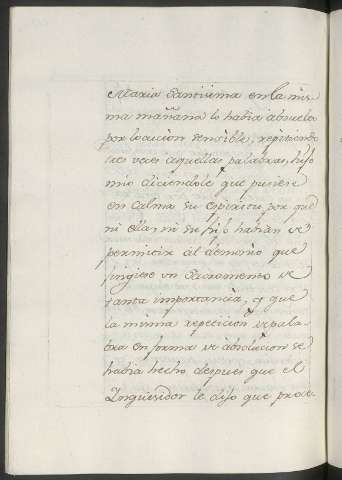 Maria Santisima en la mis-
ma mañana lo havia absuelto
por locucion sensible, repitiendo
tres veces aquellas palabras, hijo
mio diciendole que pusiese
en calma su espiritu por que
ni ella, ni su hijo habian de
permitir al demonio que
fingiese un Sacramento de
tanta importancia, y que
la misma repeticion de pala-
bra en forma de absolucion se
habia hecho despues que el
Inquisidor le dijo que proce-